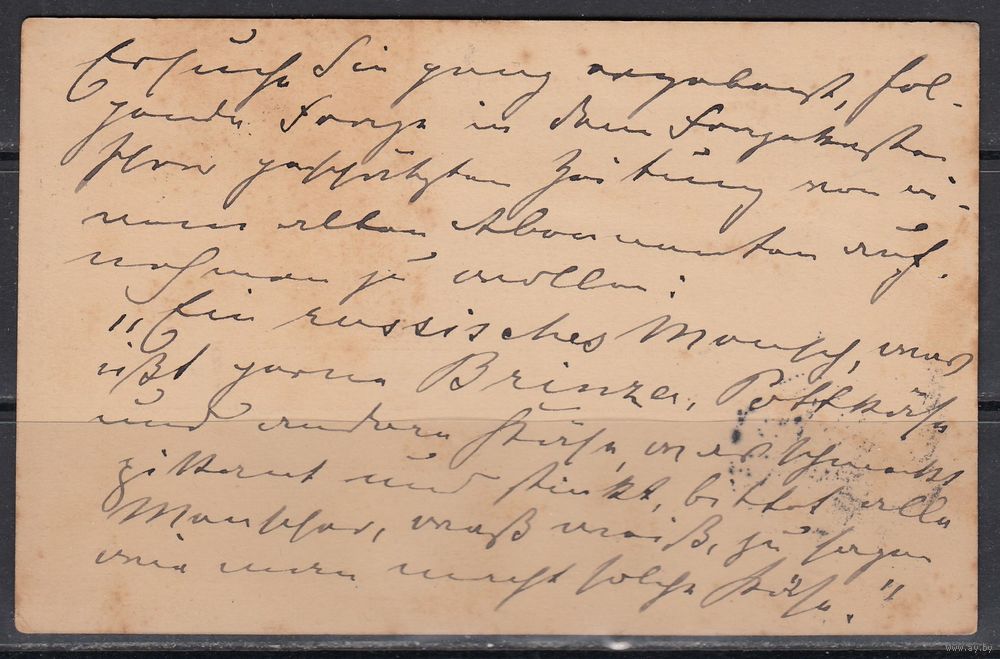 Ersuche Sie ganz ergebenst, fol-
gende Frage in dem Fragekasten
Ihrer geschätzten Zeitung von ei-
nem alten Abonnenten auf-
nehmen zu wollen:
„Ein russisches Mensch, was
ißt gerne Brinza, Pottkäse
und andere Käse, was schmeckt
pikant und stinkt, bittet alle
Menscher, waß weiß, zu sagen
wie man macht solche Käse."
www.ay.by